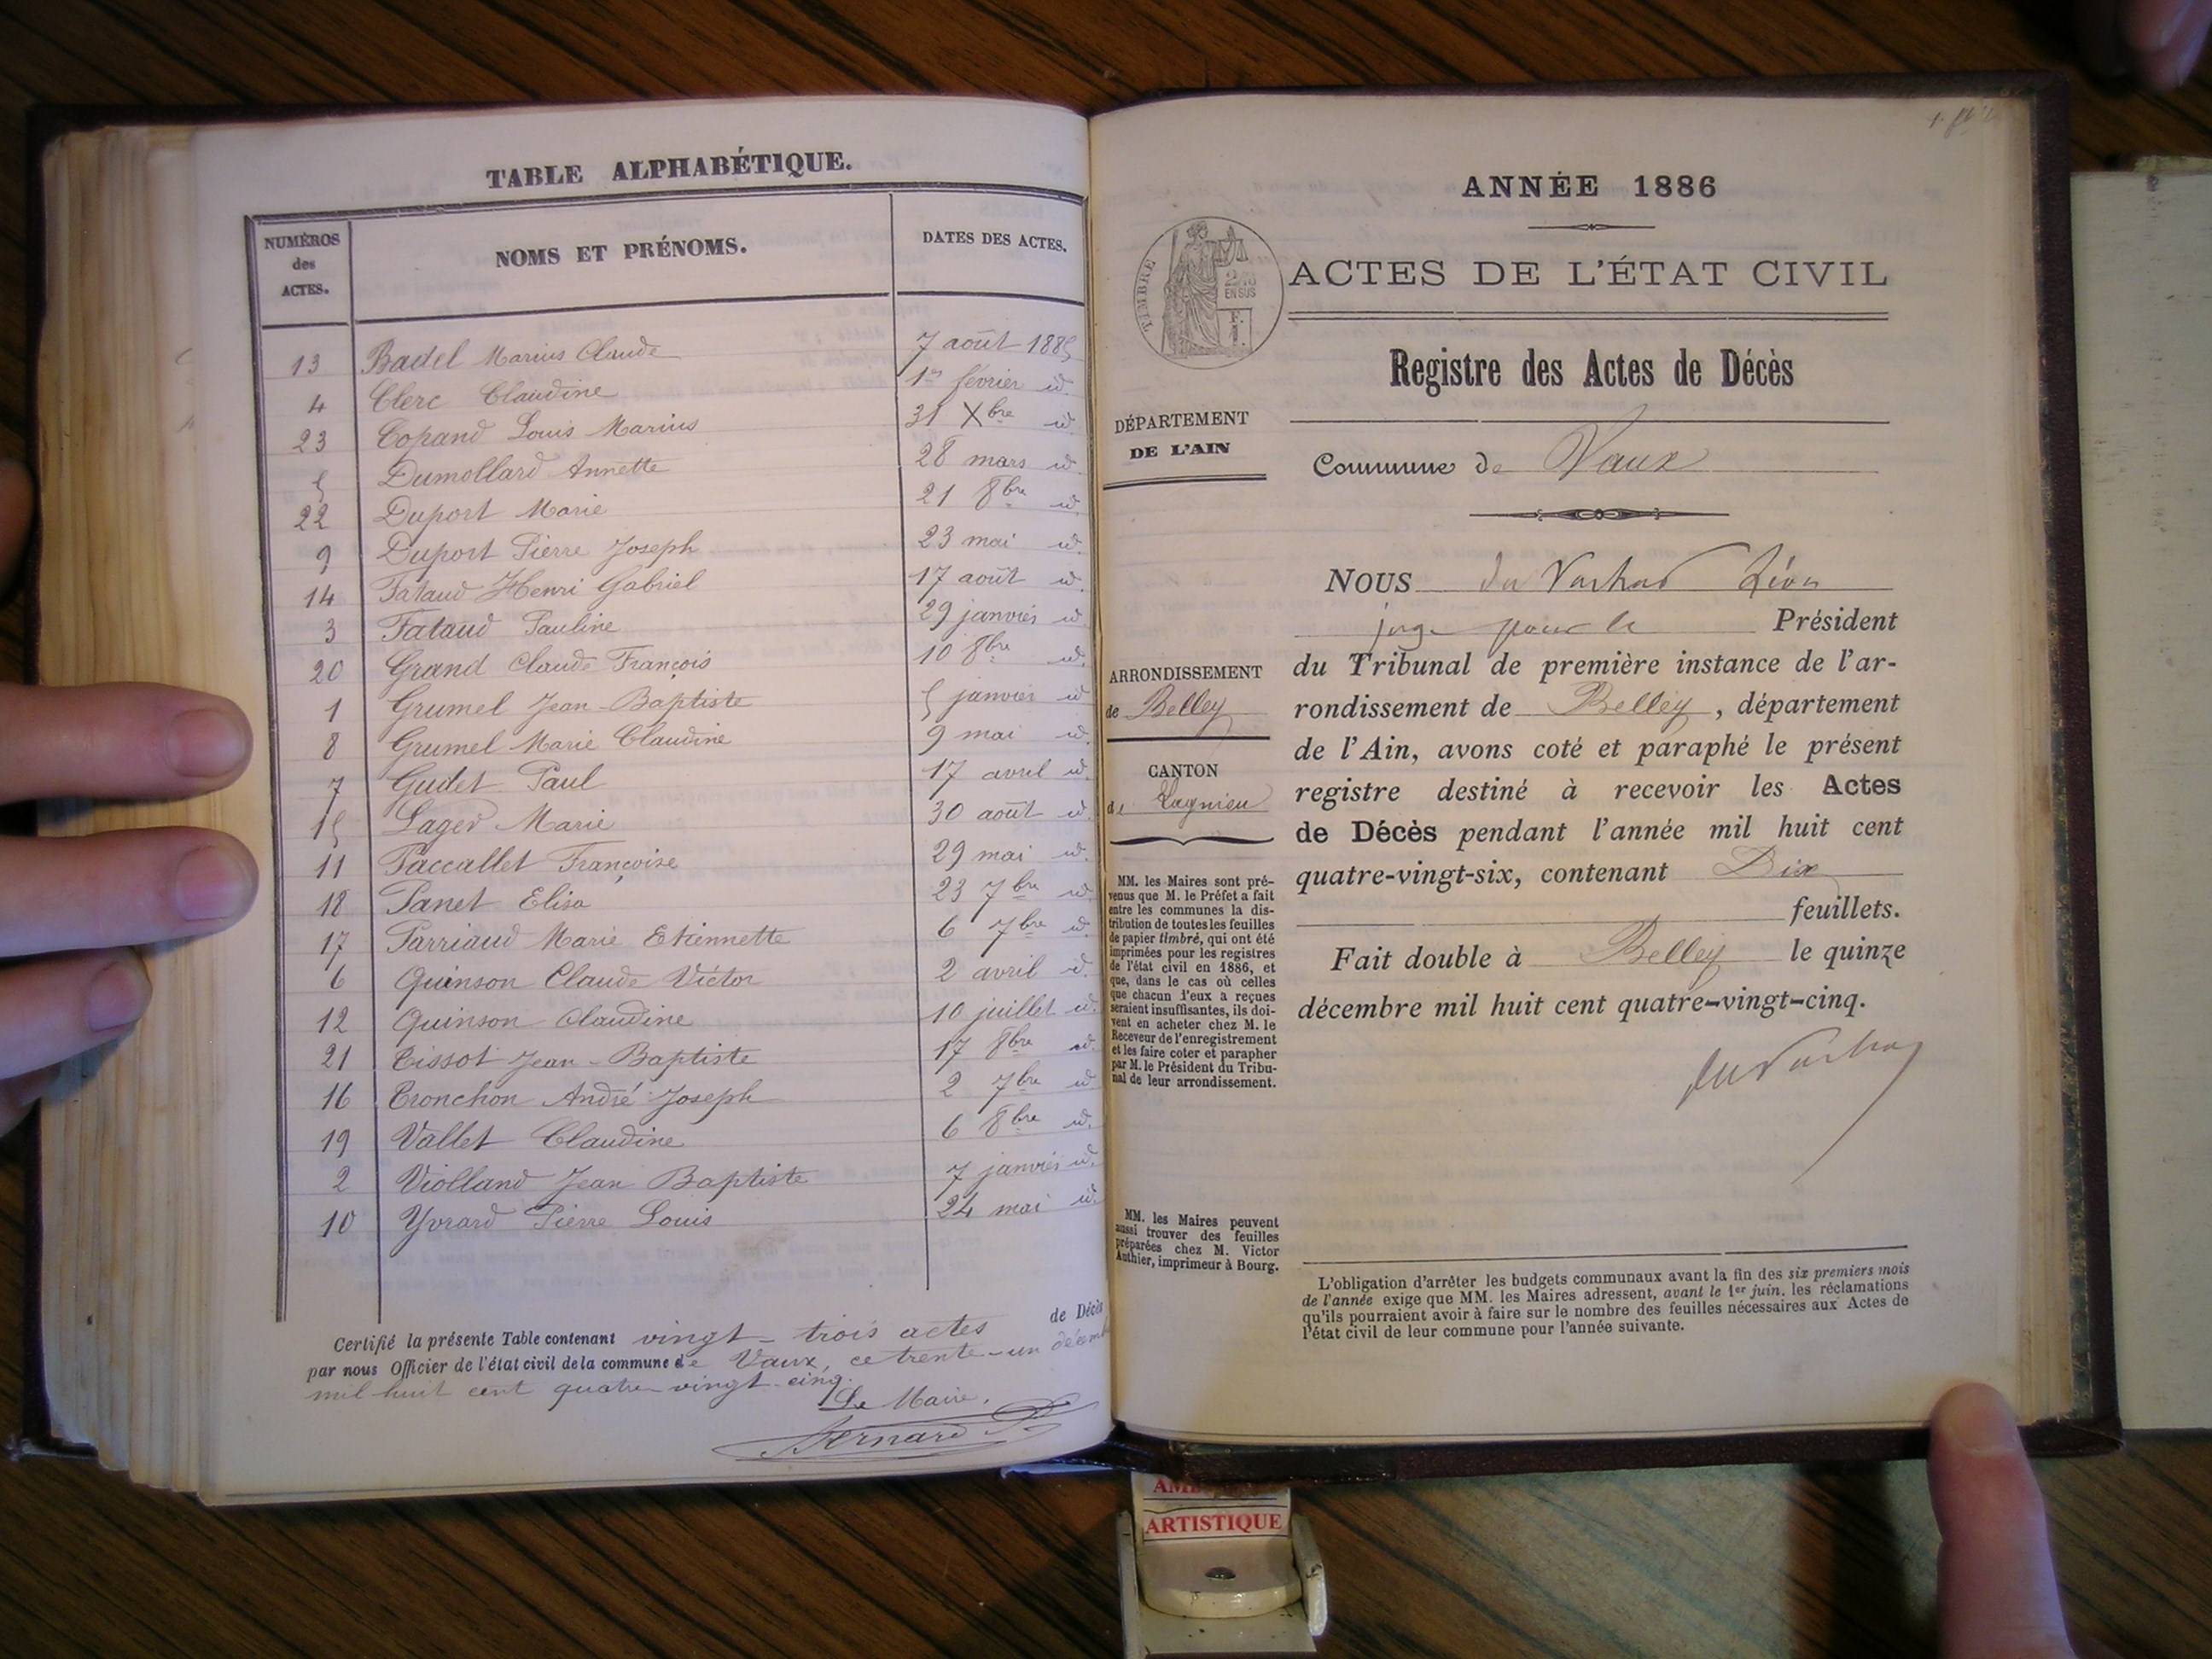 TABLE ALPHABÉTIQUE.
NUMÉROS des ACTES. NOMS ET PRÉNOMS. DATES DES ACTES.
13 Badel Marius Claude 7 août 1885
4 Clerc Claudine 1er février id.
23 Copand Louis Marius 31 Xbre id.
5 Dumollard Annette 28 mars id.
22 Duport Marie 21 8bre id.
9 Duport Pierre Joseph 23 mai id.
14 Fataud Henri Gabriel 17 août id.
3 Fataud Pauline 29 janvier id.
20 Grand Claude François 10 8bre id.
1 Grumel Jean-Baptiste 5 janvier id.
8 Grumel Marie Claudine 9 mai id.
7 Gudet Paul 17 avril id.
15 Lager Marie 30 août id.
11 Paccallet Françoise 29 mai id.
18 Panet Elisa 23 7bre id.
17 Parriaud Marie Etiennette 6 7bre id.
6 Quinson Claude Victor 2 avril id.
12 Quinson Claudine 10 juillet id.
21 Tissot Jean-Baptiste 17 8bre id.
16 Tronchon André Joseph 2 7bre id.
19 Vallet Claudine 6 8bre id.
2 Violland Jean Baptiste 7 janvier id.
10 Yvrard Pierre Louis 24 mai id.
Certifié la présente Table contenant vingt-trois actes de Décès
par nous Officier de l'état civil de la commune de Vaux, ce trente-un décemb
mil huit cent quatre-vingt-cinq.
Le Maire,
Bernard
ANNÉE 1886
TIMBRE
2/10
EN SUS
F.
1.
ACTES DE L'ÉTAT CIVIL
Registre des Actes de Décès
DÉPARTEMENT
DE L'AIN
Commune de Vaux
ARRONDISSEMENT
de Belley
CANTON
de Lagnieu
MM. les Maires sont pré-
venus que M. le Préfet a fait
entre les communes la dis-
tribution de toutes les feuilles
de papier timbré, qui ont été
imprimées pour les registres
de l'état civil en 1886, et
que, dans le cas où celles
que chacun d'eux a reçues
seraient insuffisantes, ils doi-
vent en acheter chez M. le
Receveur de l'enregistrement
et les faire coter et parapher
par M. le Président du Tribu-
nal de leur arrondissement.
MM. les Maires peuvent
aussi trouver des feuilles
préparées chez M. Victor
Authier, imprimeur à Bourg.
NOUS du Léon
juge pour le Président
du Tribunal de première instance de l'ar-
rondissement de Belley, département
de l'Ain, avons coté et paraphé le présent
registre destiné à recevoir les Actes
de Décès pendant l'année mil huit cent
quatre-vingt-six, contenant Dix
feuillets.
Fait double à Belley le quinze
décembre mil huit cent quatre-vingt-cinq.
L'obligation d'arrêter les budgets communaux avant la fin des six premiers mois
de l'année exige que MM. les Maires adressent, avant le 1er juin, les réclamations
qu'ils pourraient avoir à faire sur le nombre des feuilles nécessaires aux Actes de
l'état civil de leur commune pour l'année suivante.
ARTISTIQUE